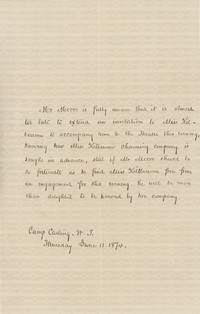 Mr Moore is fully aware that it is almost
too late to extend an invitation to Miss Kil-
bourn to accompany him to the Theatre this evening,
knowing how Miss Kilbourn's charming company is
sought in advance, still if Mr Moore should be
so fortunate as to find Miss Kilbourn free from
an engagement for this evening, he will be more
than delighted to be honored by her company
Camp Carling. W. T.
Thursday June 11. 1874.